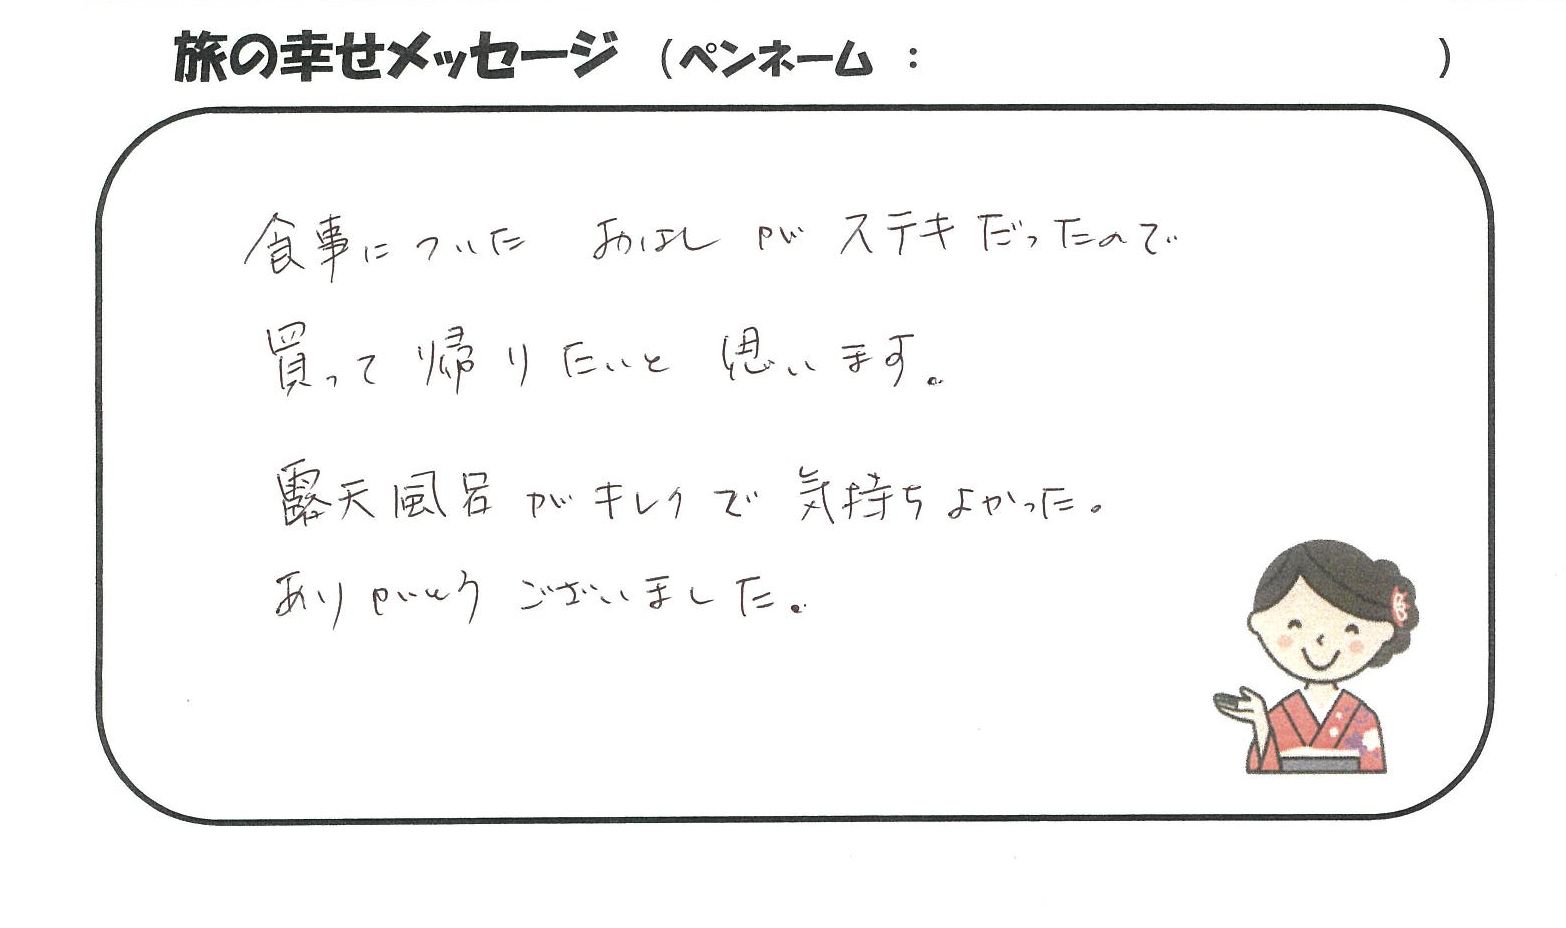 旅の幸せメッセージ （ペンネーム ： ）
食事についた おはし が ステキだったので
買って帰りたいと 思います。
露天風呂がキレイで 気持ちよかった。
ありがとう ございました。